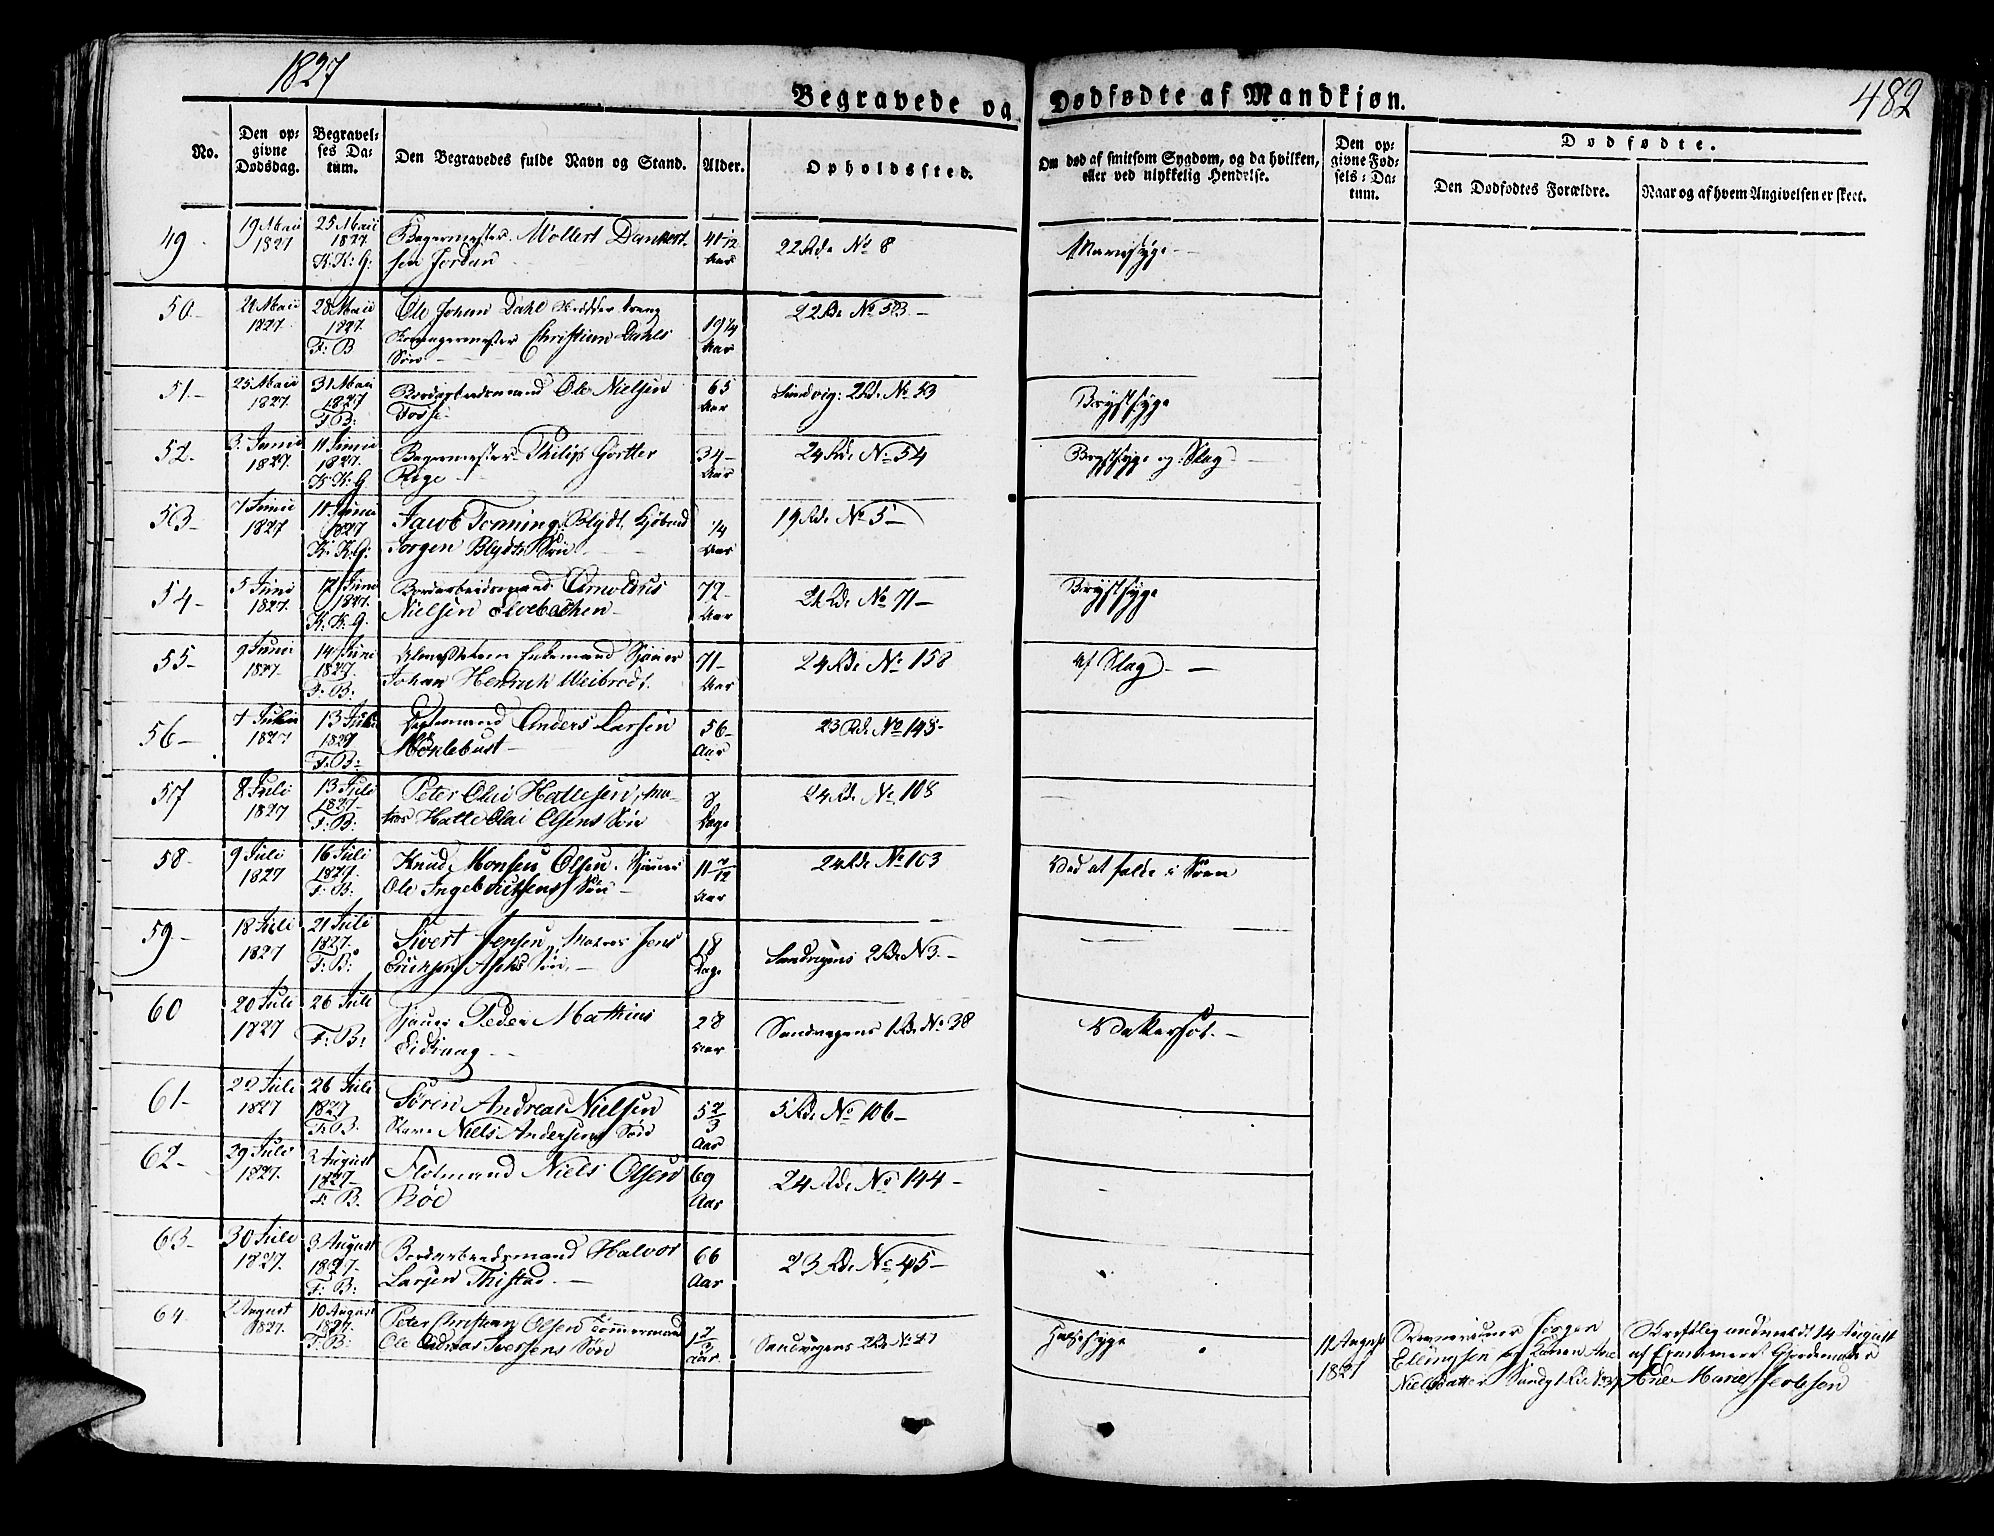 1827
482
Begravede og Dødfødte af Mandkjøn.
No.
Den opgivne Dødsdag.
Begravelses Datum.
Den Begravedes fulde Navn og Stand.
Alder.
Opholdssted.
Om død af smitsom Sygdom, og da hvilken, eller ved ulykkelig Hendelse.
Den opgivne Fødsels-Datum.
Dødfødte.
Den Dødfødtes Forældre.
Naar og af hvem Angivelsen er skeet.
49 19 Maii 1827 25 Maii 1827 K: K: G: Bagermester Møllert Dankertsen Jordan 22 Rde No 8
50 1827 28 Maii 1827 F: B Ole Johan Dahl Christian Dahls Søn 19 1/4 Aar 22 Rde No 53
51 25 Maii 1827 31 Maii 1827 F: B: Ole Nielsen Fosse 65 Aar Sandvig: 2 Rde No 53 Brystsyge
52 3 Junii 1827 11 Junii 1827 K: K: G Bagermester Philip Gørtler Rege 34 Aar 24 Rde No 54 Brystsyge og Slag
53 7 Junii 1827 11 Junii 1827 K: K: G: Jacob Tonning Blydt Jørgen Blydts Søn 1/4 Aar 19 Rde No 5
54 5 Juni 1827 12 Juni 1827 K: K: G. Bordarbeidsmand Arnoldus Nielsen Elvebachen 72 Aar No 71 Brystsyge
55 9 Juni 1827 14 Juni 1827 F: B: Enkemand Sjouer Johan Henrich Weibrodt 71 Aar 24 Rde No 158 Af Slag
56 7 Juli 1827 13 Juli 1827 F: B: Anders Larsen Monlebust 56 Aar 23 Rde No 148
57 8 Juli 1827 13 Juli 1827 F: B: Peter Olai Hallesen, Matros Halle Olai Olsens Søn 8 Dage 24 Rde No 108
58 9 Juli 1827 16 Juli 1827 F: B: Knud Monsen Olsen. Sjouer Ole Ingebrigtsens Søn 11 7/12 Aar 24 Rde No 103 Ved at falde i Søen
59 18 Juli 1827 21 Juli 1827 F: B: Sivert Jensen, Matros Jens Erichsen Asks Søn 18 Dage Sandvigens 2 Rde N 3
60 20 Juli 1827 26 Juli F: B: Sjouer Peder Mathias Eidsvaag 28 Aar Sandvigens 1 Rde No 38 Vattersot
61 22 Juli 1827 26 Juli 1827 F: B. Søren Andreas Nielsen Niels Andersens Søn 5 2/3 Aar 5 Rde No 106
62 29 Juli 1827 3 August 1827 F: B. Flotmand Niels Olsen Bøe 69 Aar 24 Rde No 144
63 30 Juli 1827 3 August 1827 F: B: Bordarbeidsmand Halvor Larsen Thistad 66 Aar 23 Rde No 45
64 August 1827 10 August 1827 F: B: Peter Christian Olsen Tømmermand Ole Andreas Iversens Søn 1 2/3 Aar Sandvigens 2 Rde No 27 Halssyge
11 August 1827
Jørgen Ellingsen og Konen Ane Nielsdatter Sandv 1 Rde
Skriftlig anmeldt 14 August af Examineret Gjordemoder Ane Marie Jacobsen